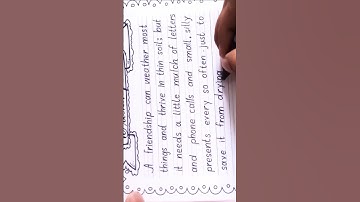 A friendship can weather most
things and thrive in thin soil; but
it needs a little mulch of letters
and phone calls and small, silly
presents every so often just to
save it from drying